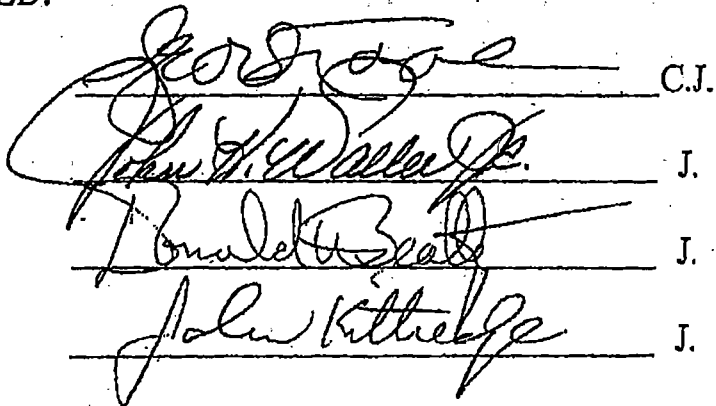 C.J.
John H. Waller Jr. J.
Donald W Beatty J.
John Kittredge J.